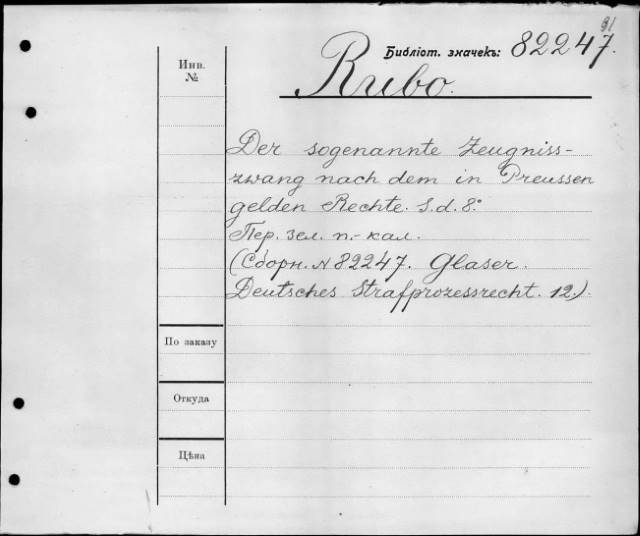 91
Библіот. значекъ: 82247.
Rubo.
Инв.
№
Der sogenannte Zeugniss-
zwang nach dem in Preussen
gelden Rechte. S.d. 8º
Пер. зел. п.-кал.
(Сборн. № 82247. Glaser.
Deutsches Strafprozessrecht. 12).
По заказу
Откуда
Цѣна